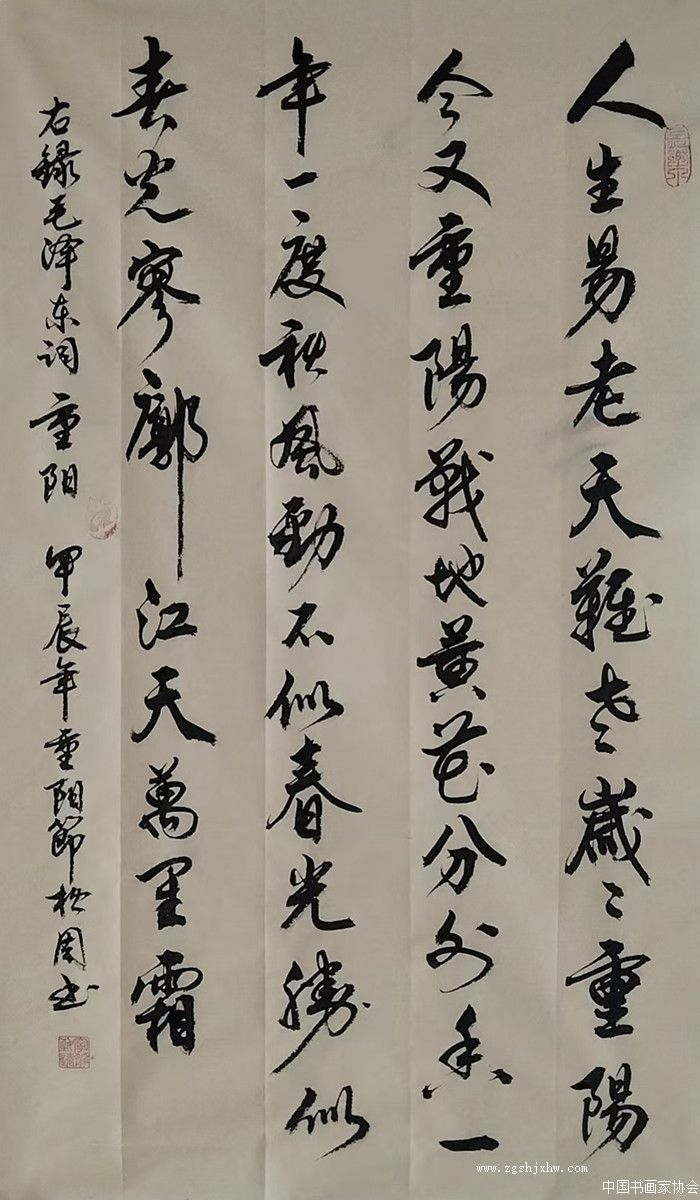 人生易老天難老歲〻重陽
今又重陽戰地黃花分外香一
年一度秋風動不似春光勝似
春光寥廓江天萬里霜
右錄毛泽东词重阳 甲辰年重阳節松周书
www.zgshjxhw.com
中国书画家协会